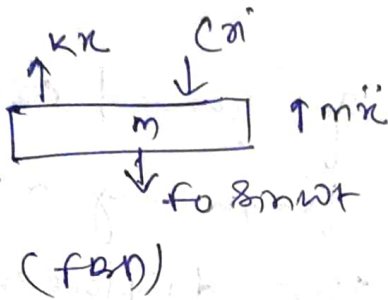 kx
Cẋ
m
mẍ
fo sinωt
(fBD)